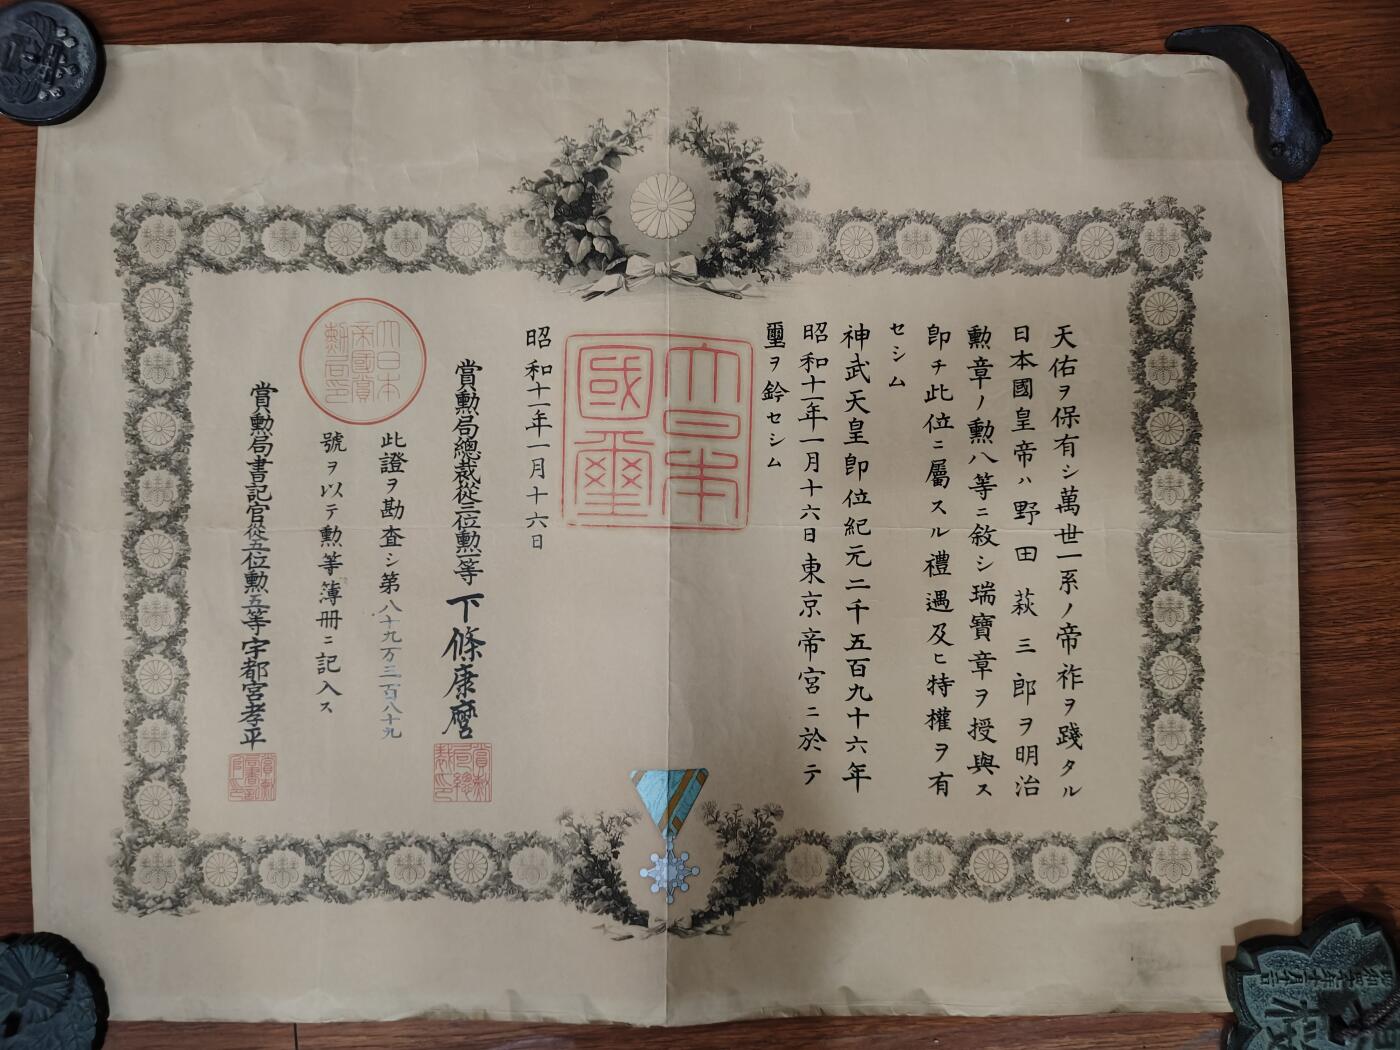 天佑ヲ保有シ萬世一系ノ帝祚ヲ踐タル
日本國皇帝ハ野田萩三郎ヲ明治
勲章ノ勲八等ニ敘シ瑞寶章ヲ授與ス
卽チ此位ニ屬スル禮遇及ヒ特權ヲ有
セシム
神武天皇卽位紀元二千五百九十六年
昭和十一年一月十六日東京帝宮ニ於テ
璽ヲ鈐セシム
大日本
國璽
昭和十一年一月十六日
賞勲局總裁從三位勲一等下條康麿
此證ヲ勘査シ第八十九万三百八十九
號ヲ以テ勲等簿冊ニ記入ス
大日本
帝國賞
勲局印
賞勲局書記官從五位勲五等宇都宮孝平